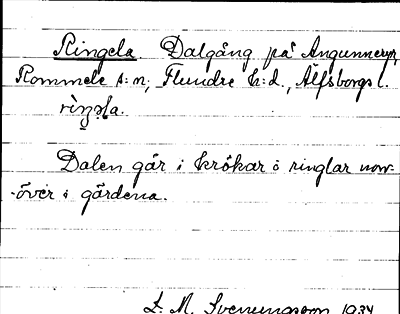 Ringela. Dalgång på Angunneryr,
Rommele s:n; Flundre h:d., Älfsborgs l.
Dalen går i krökar o ringlar now-
-över i gärdena.
L. M. Svenungsson 1934